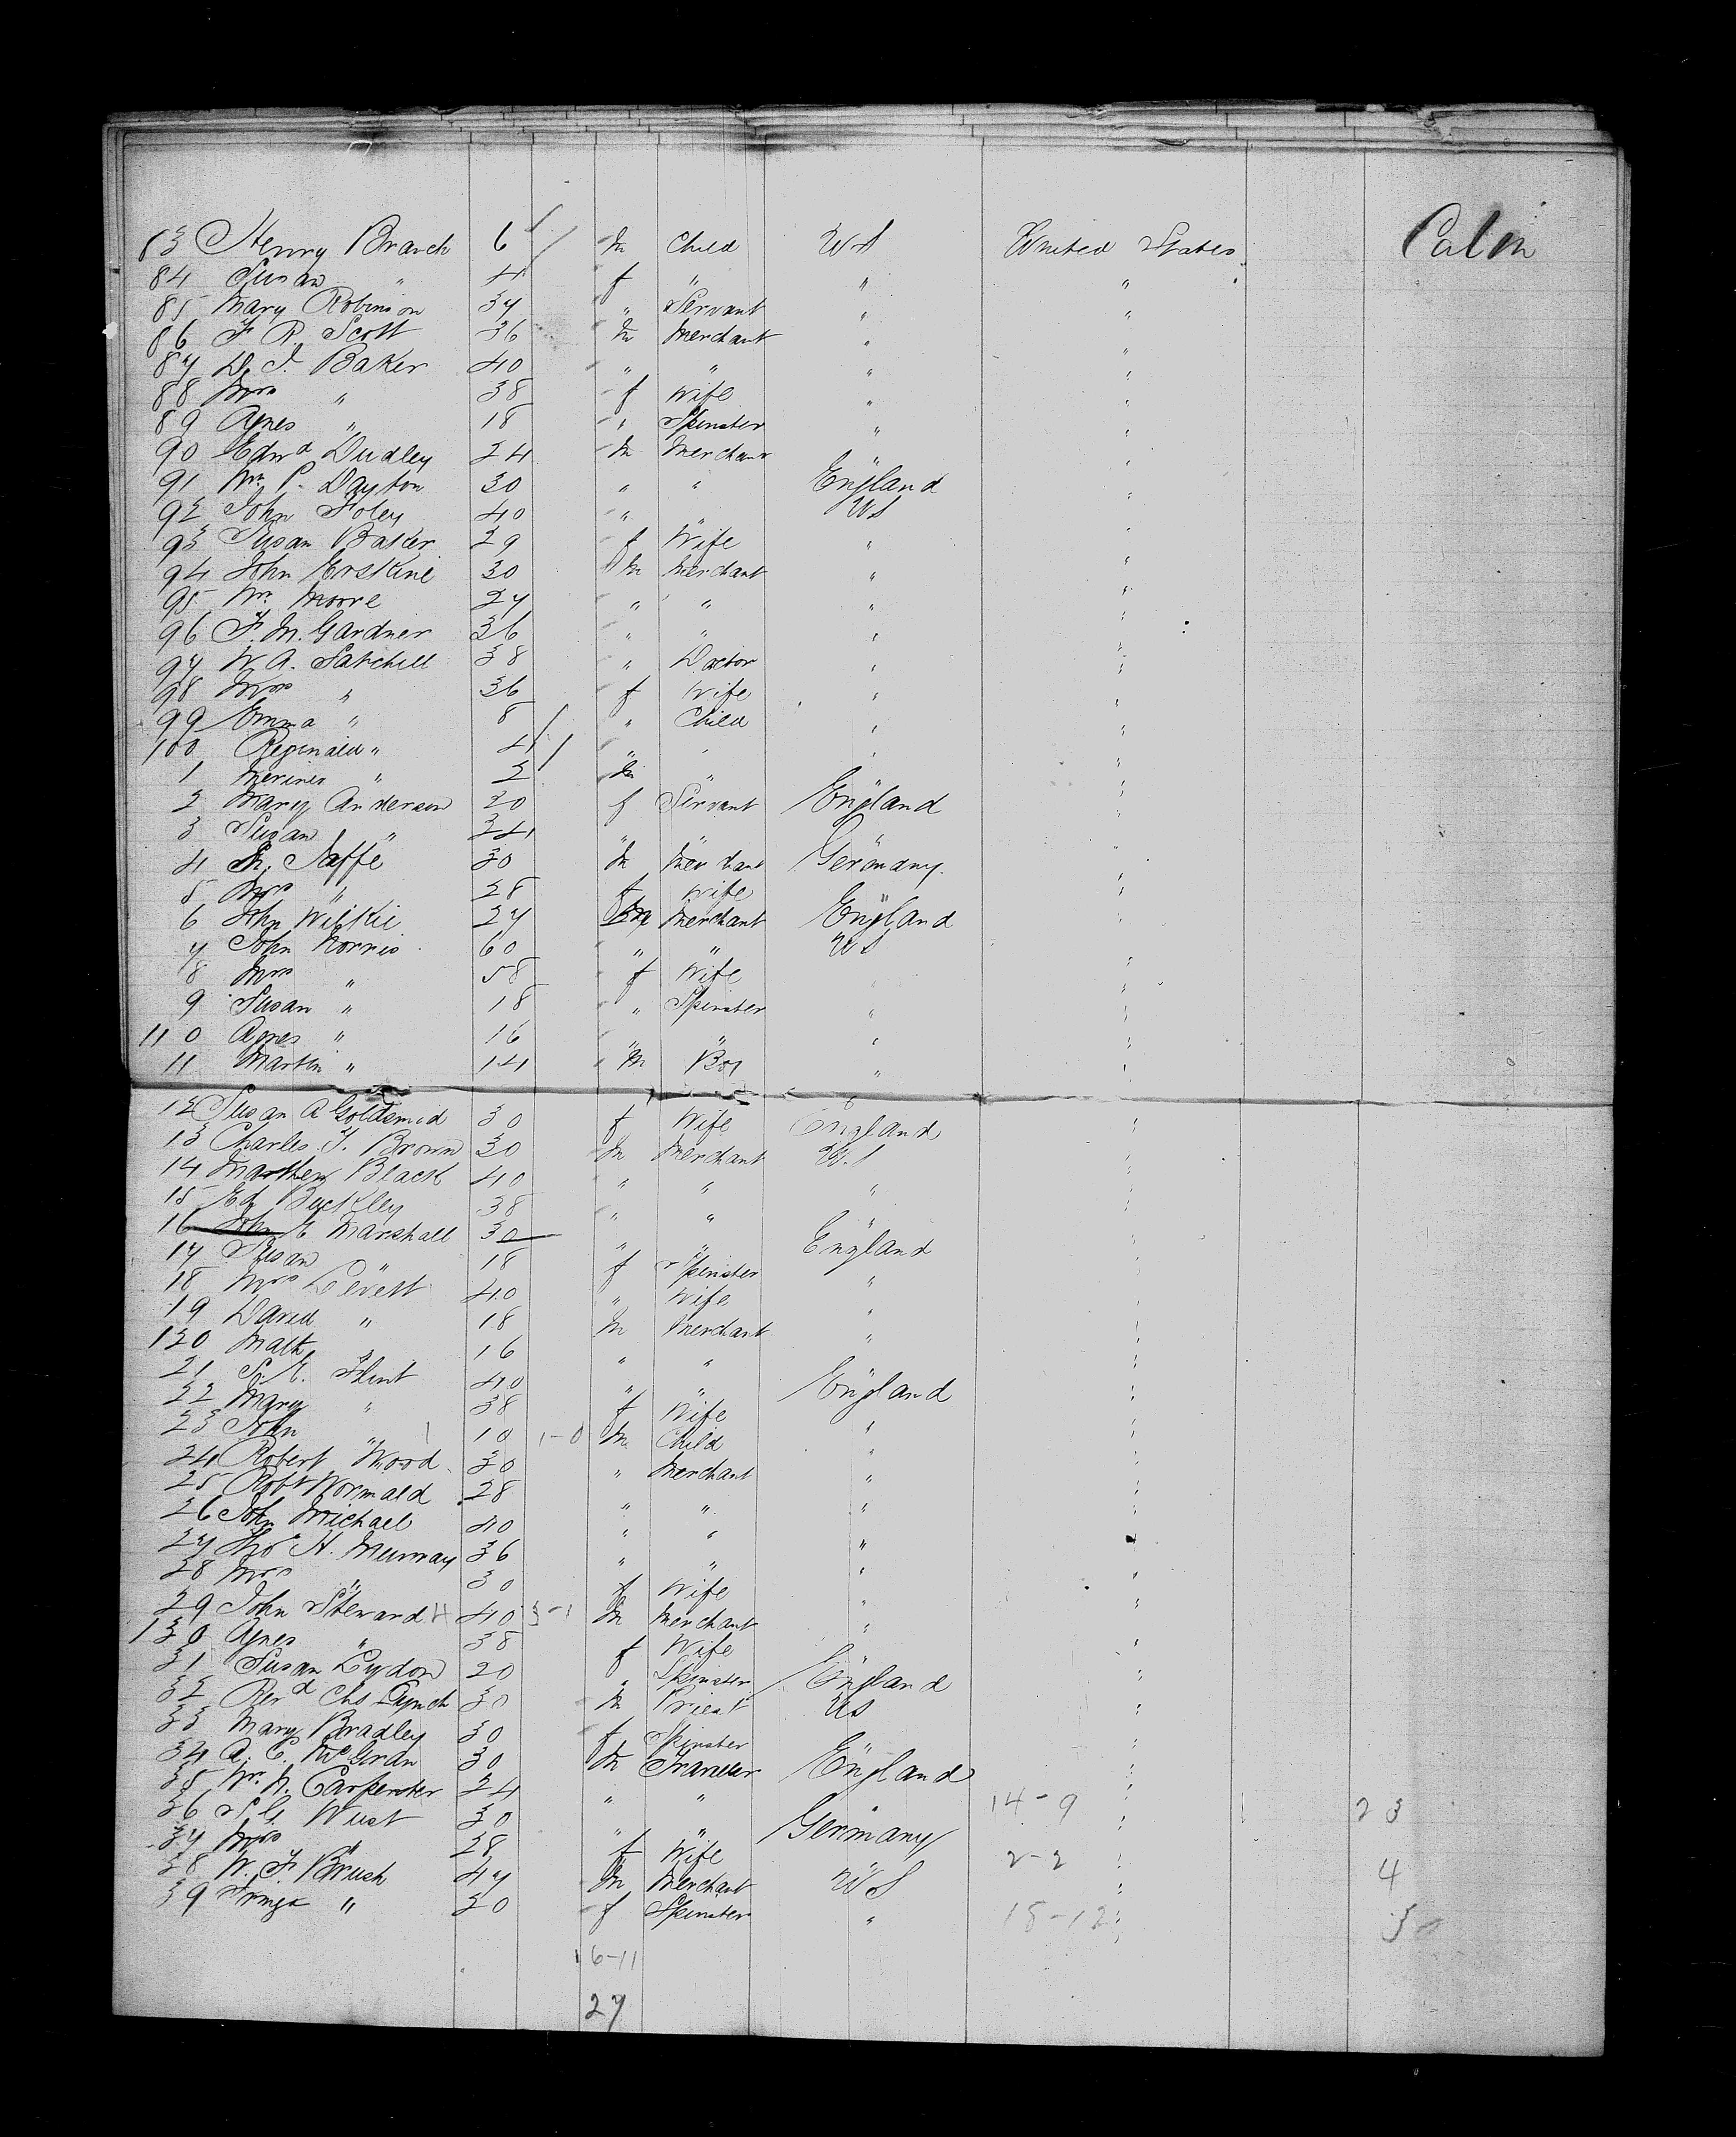 83 Henry Branch 6 m Child US United States Cabin
84 Susan " 4 f " " "
85 Mary Robinson 37 " Servant " "
86 F R Scott 36 m Merchant " "
87 D. J. Baker 40 " " " "
88 Mrs " 38 f Wife " "
89 Agnes " 18 " Spinster " "
90 Edwd Dudley 24 m Merchant " "
91 Wm P. Dayton 30 " " England "
92 John Foley 40 " " US "
93 Susan Baker 29 f Wife " "
94 John Erskine 30 m Merchant " "
95 Wm Moore 27 " " " "
96 F. M. Gardner 36 " " " "
97 W. A. Satchell 38 " Doctor " "
98 Mrs " 36 f Wife " "
99 Emma " 8 " Child " "
100 Reginald " 4 " " " "
1 " 2 m " "
2 Mary Anderson 20 f Servant England "
3 Susan " 24 " " " "
4 Jaffe 30 m Merchant Germany "
5 Mrs " 28 f Wife " "
6 John Wilkie 27 m Merchant England "
7 John Norris 60 " " US
8 Mrs " 58 f Wife " "
9 Susan " 18 " Spinster " "
110 Agnes " 16 " " " "
11 Martin " 14 m Boy " "
12 Susan A Goldsmid 30 f Wife England "
13 Charles J. Brown 30 m Merchant U.S "
14 Mathew Black 40 " " " "
15 Ed Buckley 38 " " " "
16 John E Marshall 30 " " England "
17 Susan " 18 f Spinster " "
18 Mrs Levett 40 " Wife " "
19 David " 18 m Merchant " "
120 Math " 16 " " "
21 S. E. Flint 40 " " England "
22 Mary " 38 f Wife " "
23 John " 10 1-0 m Child " "
24 Robert Wood 30 " Merchant " "
25 Robt Wormald 28 " " " "
26 John Michael 40 " " " "
27 Tho H. Murray 36 " " " "
28 Mrs " 30 f Wife " "
29 John Steward 40 3-1 m Merchant " "
130 Agnes " 38 f Wife "
31 Susan Lydon 20 " Spinster England "
32 Revd Chs Lynch 30 m Priest US "
33 Mary Bradley 30 f Spinster "
34 A. C. McGran 30 m England "
35 Wm N. Carpenter 24 " " " 14-9 " 23
36 S G Wust 30 " " Germany "
37 Mrs " 28 f Wife " 2-2 " 4
38 W. F. Brush 47 m Merchant US "
39 " 20 f Spinster " 18-12 " 3
16-11
27